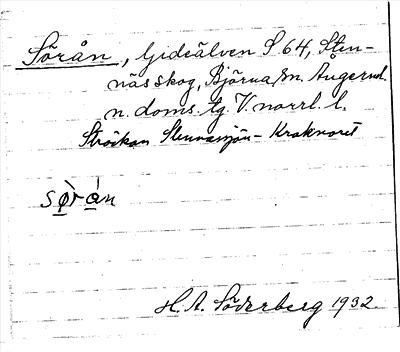 Sörån, Gideälven S 64, Sten-
näs skog, Björna sn. Ångerml.
n. doms. tg. V. norrl. l.
Sträckan Stennäsjön - Kroknoret
sø̀rán
H. A. Söderberg 1932